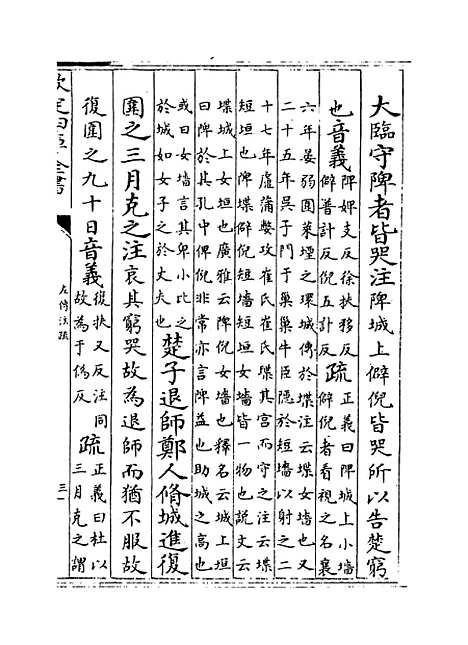 大臨守陴者皆哭注陴城上僻倪皆哭所以告楚窮
也音義陴婢支反徐扶移反
僻普計反倪五計反
疏正義曰陴城上小墻
僻倪者看視之名襄
六年晏弱圍萊堙之環城傅於堞注云堞女墻也又
二十五年吳子門于巢巢牛臣隱於短墻以射之二
十七年盧蒲嫳攻崔氏崔氏堞其宮而守之注云堞
短垣也陴堞僻倪短墻短垣女墻皆一物也説文云
堞城上女垣也廣雅云陴倪女墻也釋名云城上垣
曰陴於其孔中俾倪非常亦言陴益也助城之高也
或曰女墻言其卑小比之
於城如女子之於丈夫也
楚子退師鄭人脩城進復
圍之三月克之注哀其窮哭故為退師而猶不服故
復圍之九十日音義復扶又反注同
故為于偽反
疏正義曰杜以
三月克之謂
欽定四庫全書
左傳注疏